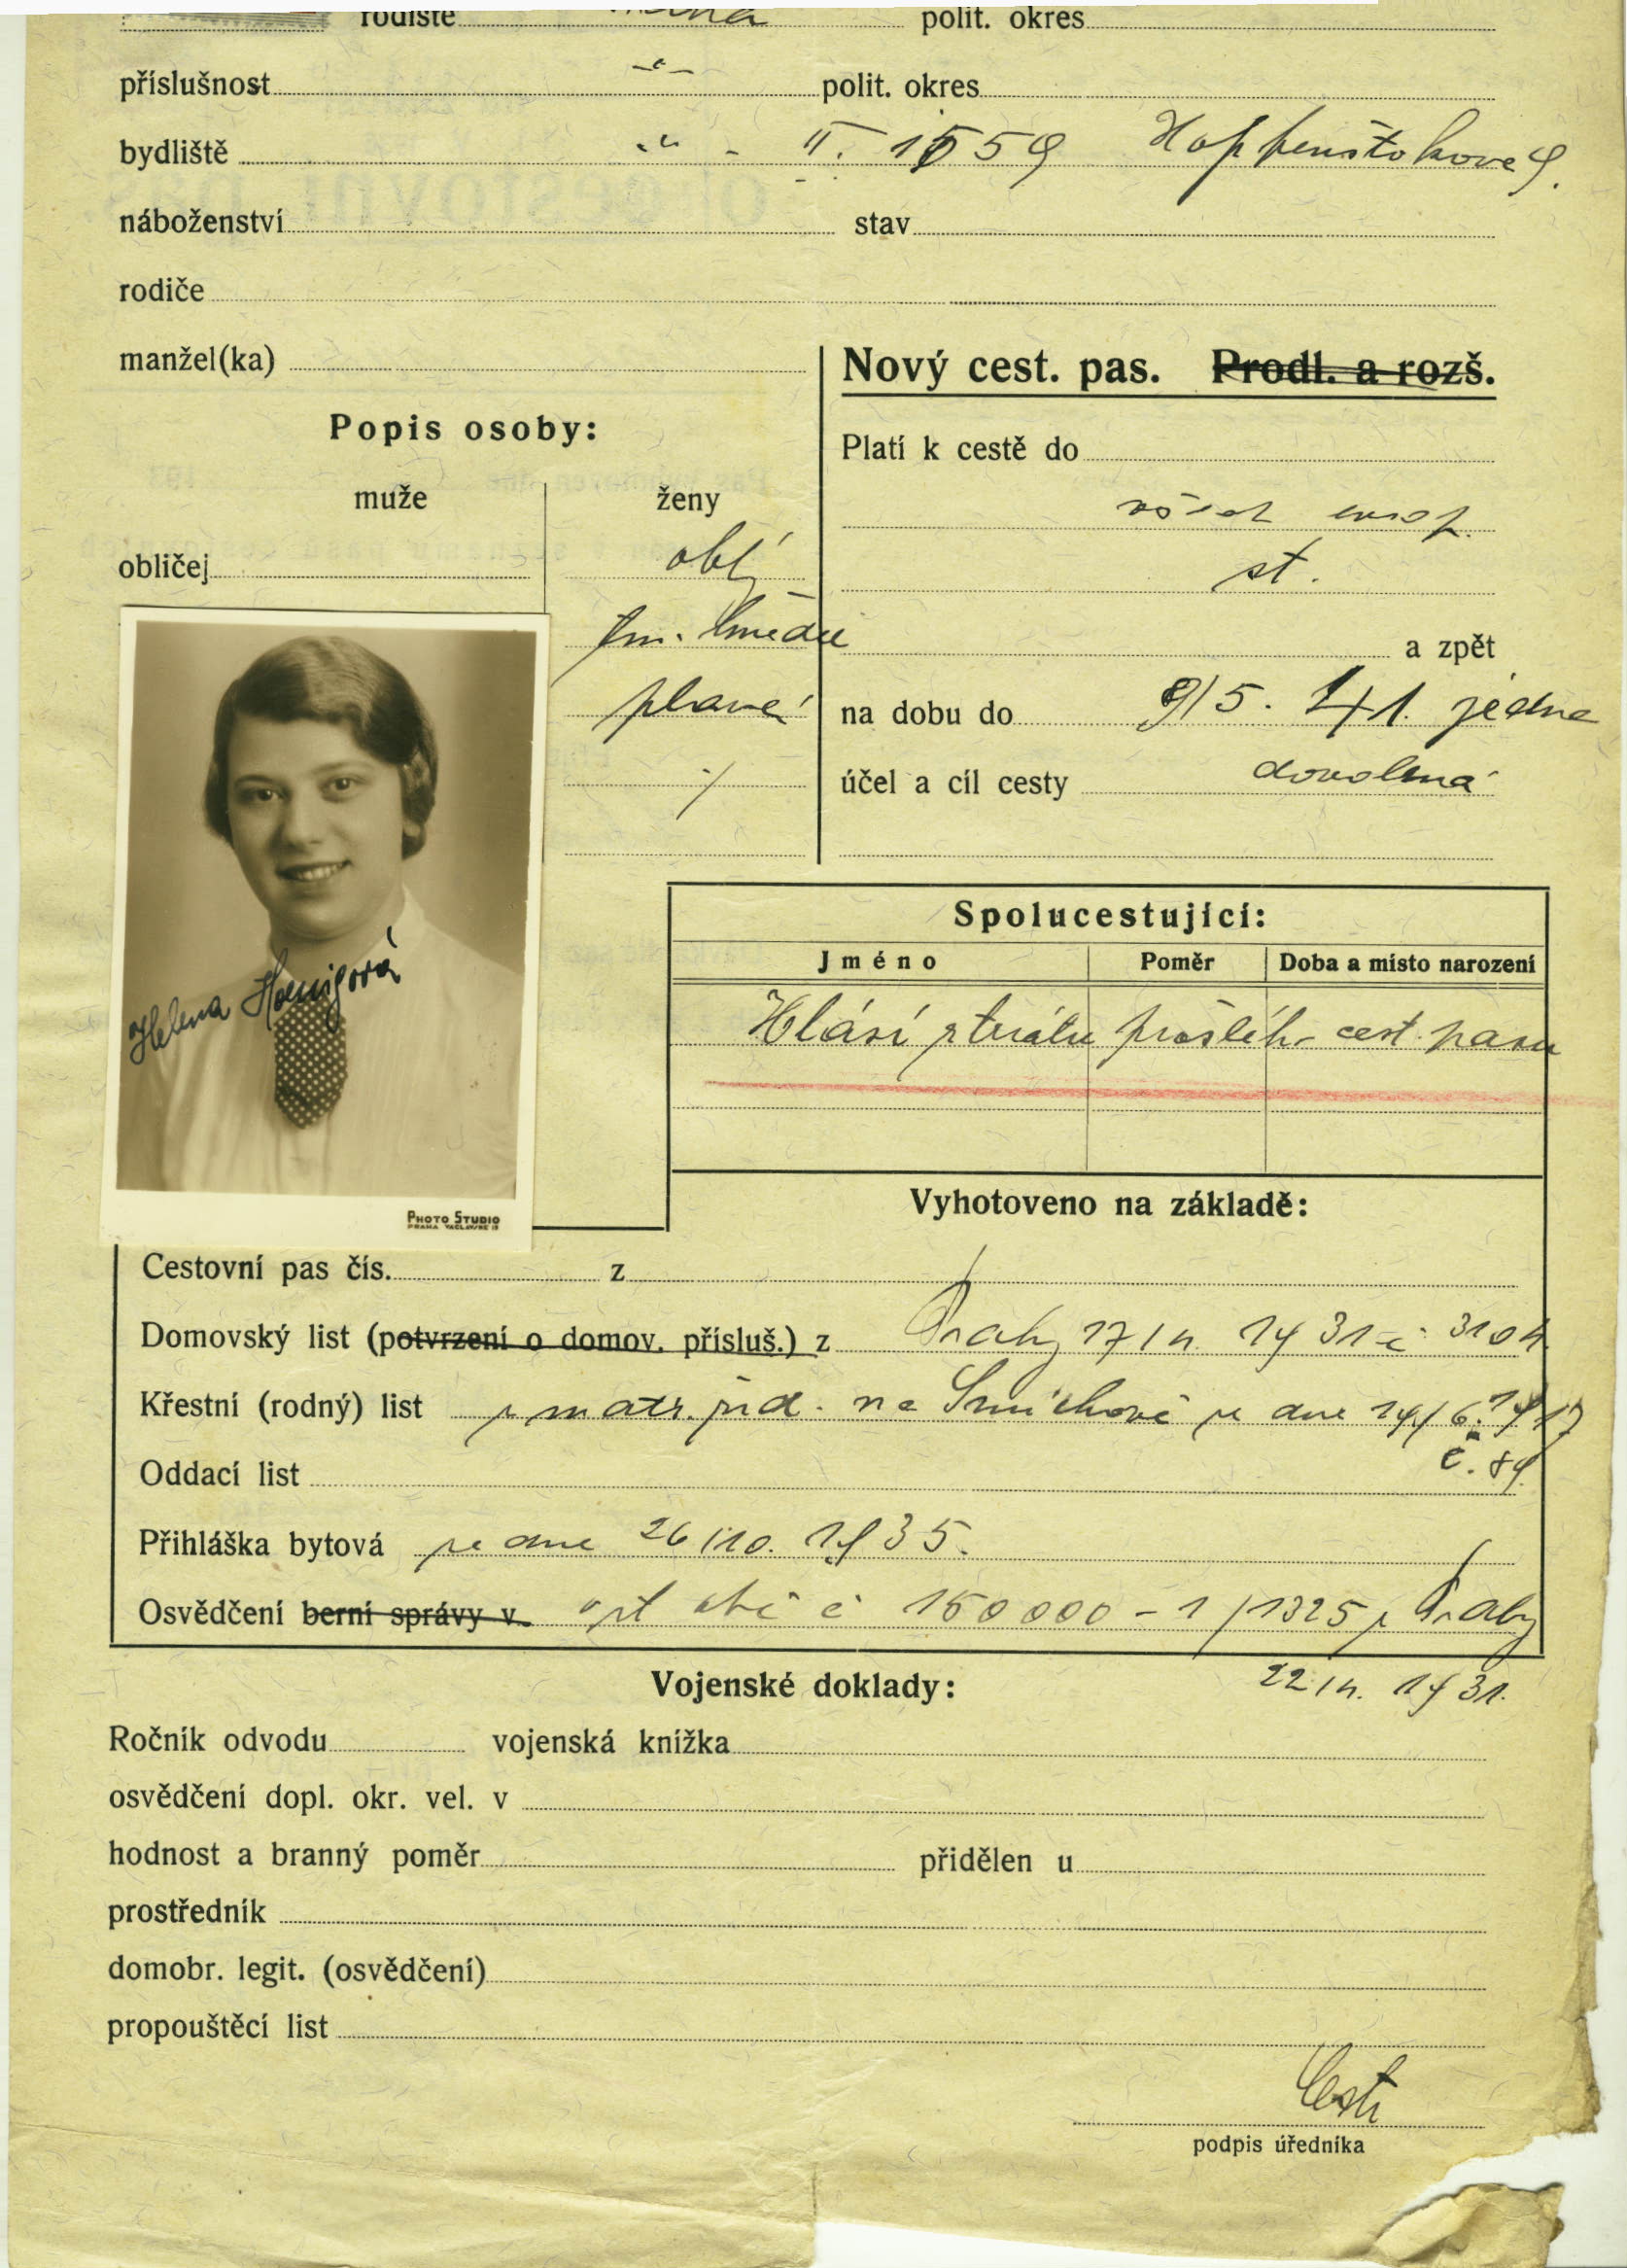 rodiště polit. okres
příslušnost -"- polit. okres
bydliště -"- II. 1559 Hopfenštokova 9.
náboženství stav
rodiče
manžel(ka)
Nový cest. pas. Prodl. a rozš.
Popis osoby:
Platí k cestě do
muže ženy
všech evrop.
obličej oblý
st.
tm. hnědé
a zpět
plavé
na dobu do 9/5. 41. jedné
účel a cíl cesty dovolená
Helena Hoenigová
PHOTO STUDIO
Spolucestující:
Jméno Poměr Doba a místo narození
Hlásí ztrátu prošlého cest. pasu
Vyhotoveno na základě:
Cestovní pas čís. z
Domovský list (potvrzení o domov. přísluš.) z Prahy 17/ 1931 č.
Křestní (rodný) list z matr. žid. na Smíchově ze dne 14/6. 1917
č. 89.
Oddací list
Přihláška bytová ze dne 26/10. 1935.
Osvědčení berní správy v. č 150000-1/1325 z Prahy
22/ 1931.
Vojenské doklady:
Ročník odvodu vojenská knížka
osvědčení dopl. okr. vel. v
hodnost a branný poměr přidělen u
prostředník
domobr. legit. (osvědčení)
propouštěcí list
podpis úředníka